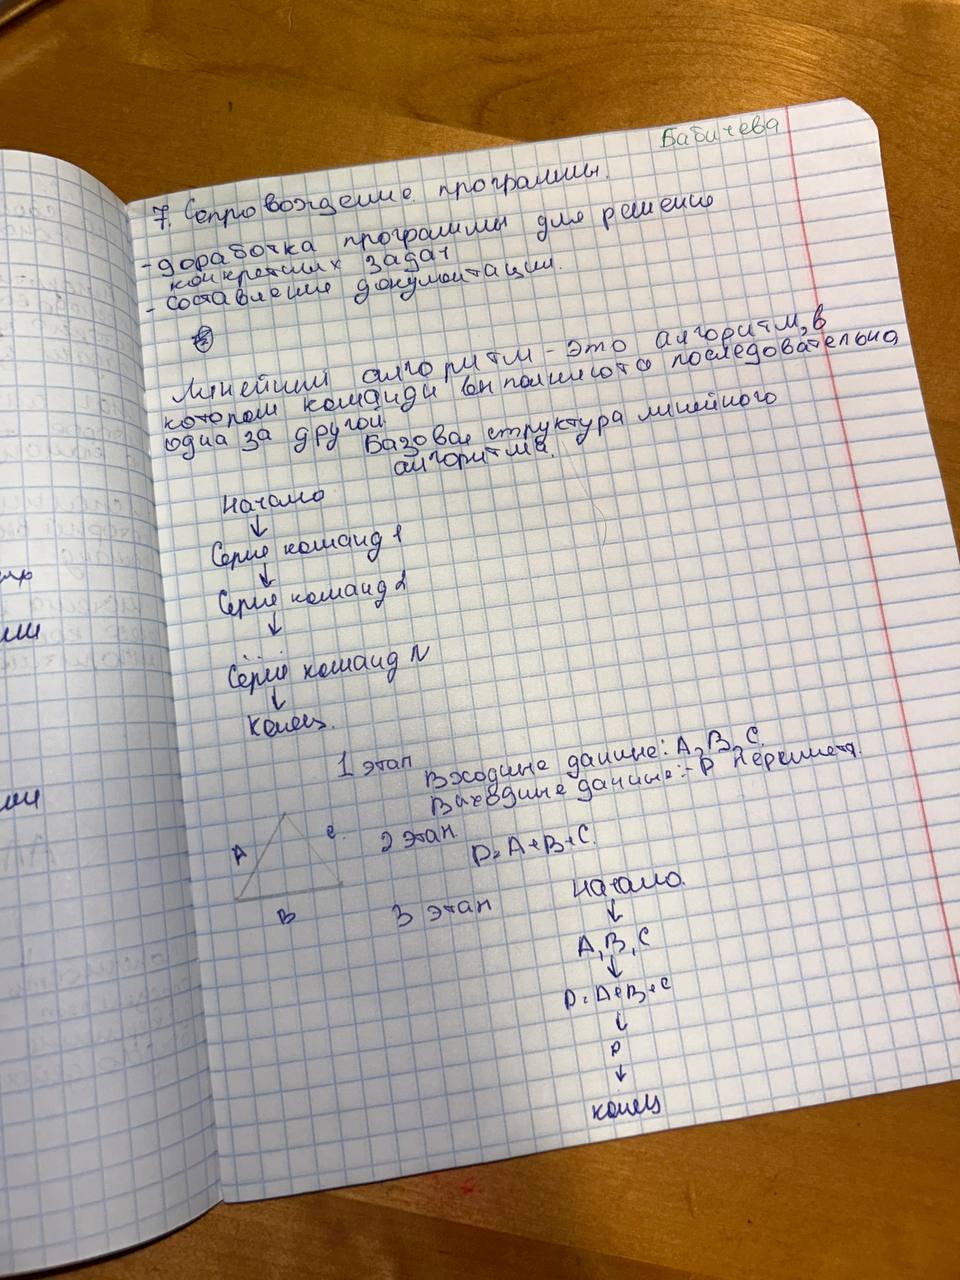 Бабичева
7. Сопровождение программы.
- доработка программы для решение
конкретных задач
- составление документации.
Линейный алгоритм - это алгоритм, в
котором команды выполняются последовательно
одна за другой.
Базовая структура линейного
алгоритма.
Начало
↓
Серия команд 1
↓
Серия команд 2
↓
...
Серия команд N
↓
конец.
1 этап
Входные данные: A, B, C.
Выходные данные: - P периметр.
A
C.
B
2 этап
P = A+B+C.
3 этап
Начало.
↓
A, B, C
↓
P = A+B+C
↓
P
↓
конец